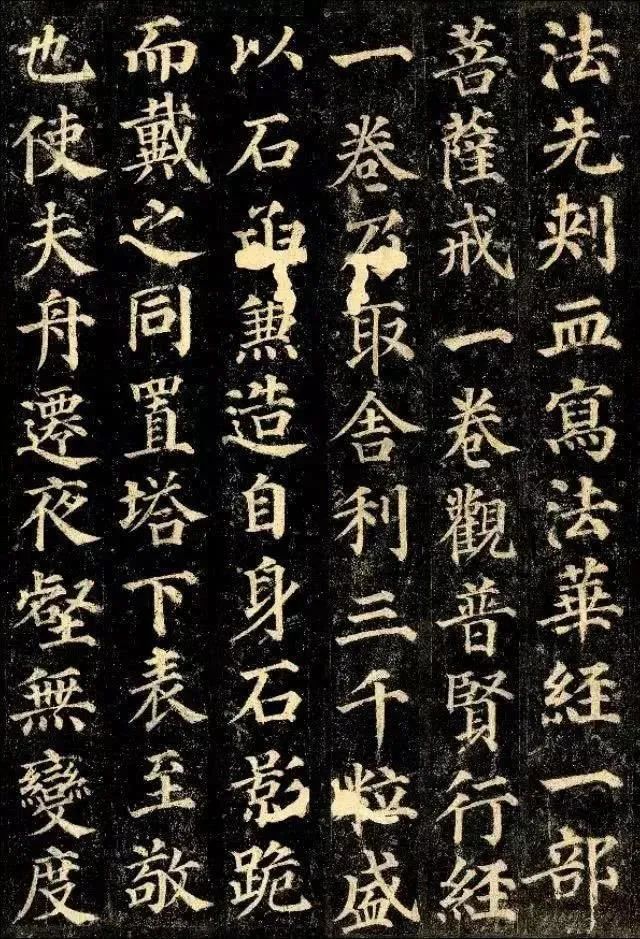 法先刾血寫法華経一部
菩薩戒一卷觀普賢行経
一卷乃取舍利三千粒盛
以石函兼造自身石影跪
而戴之同置塔下表至敬
也使夫舟遷夜壑無變度